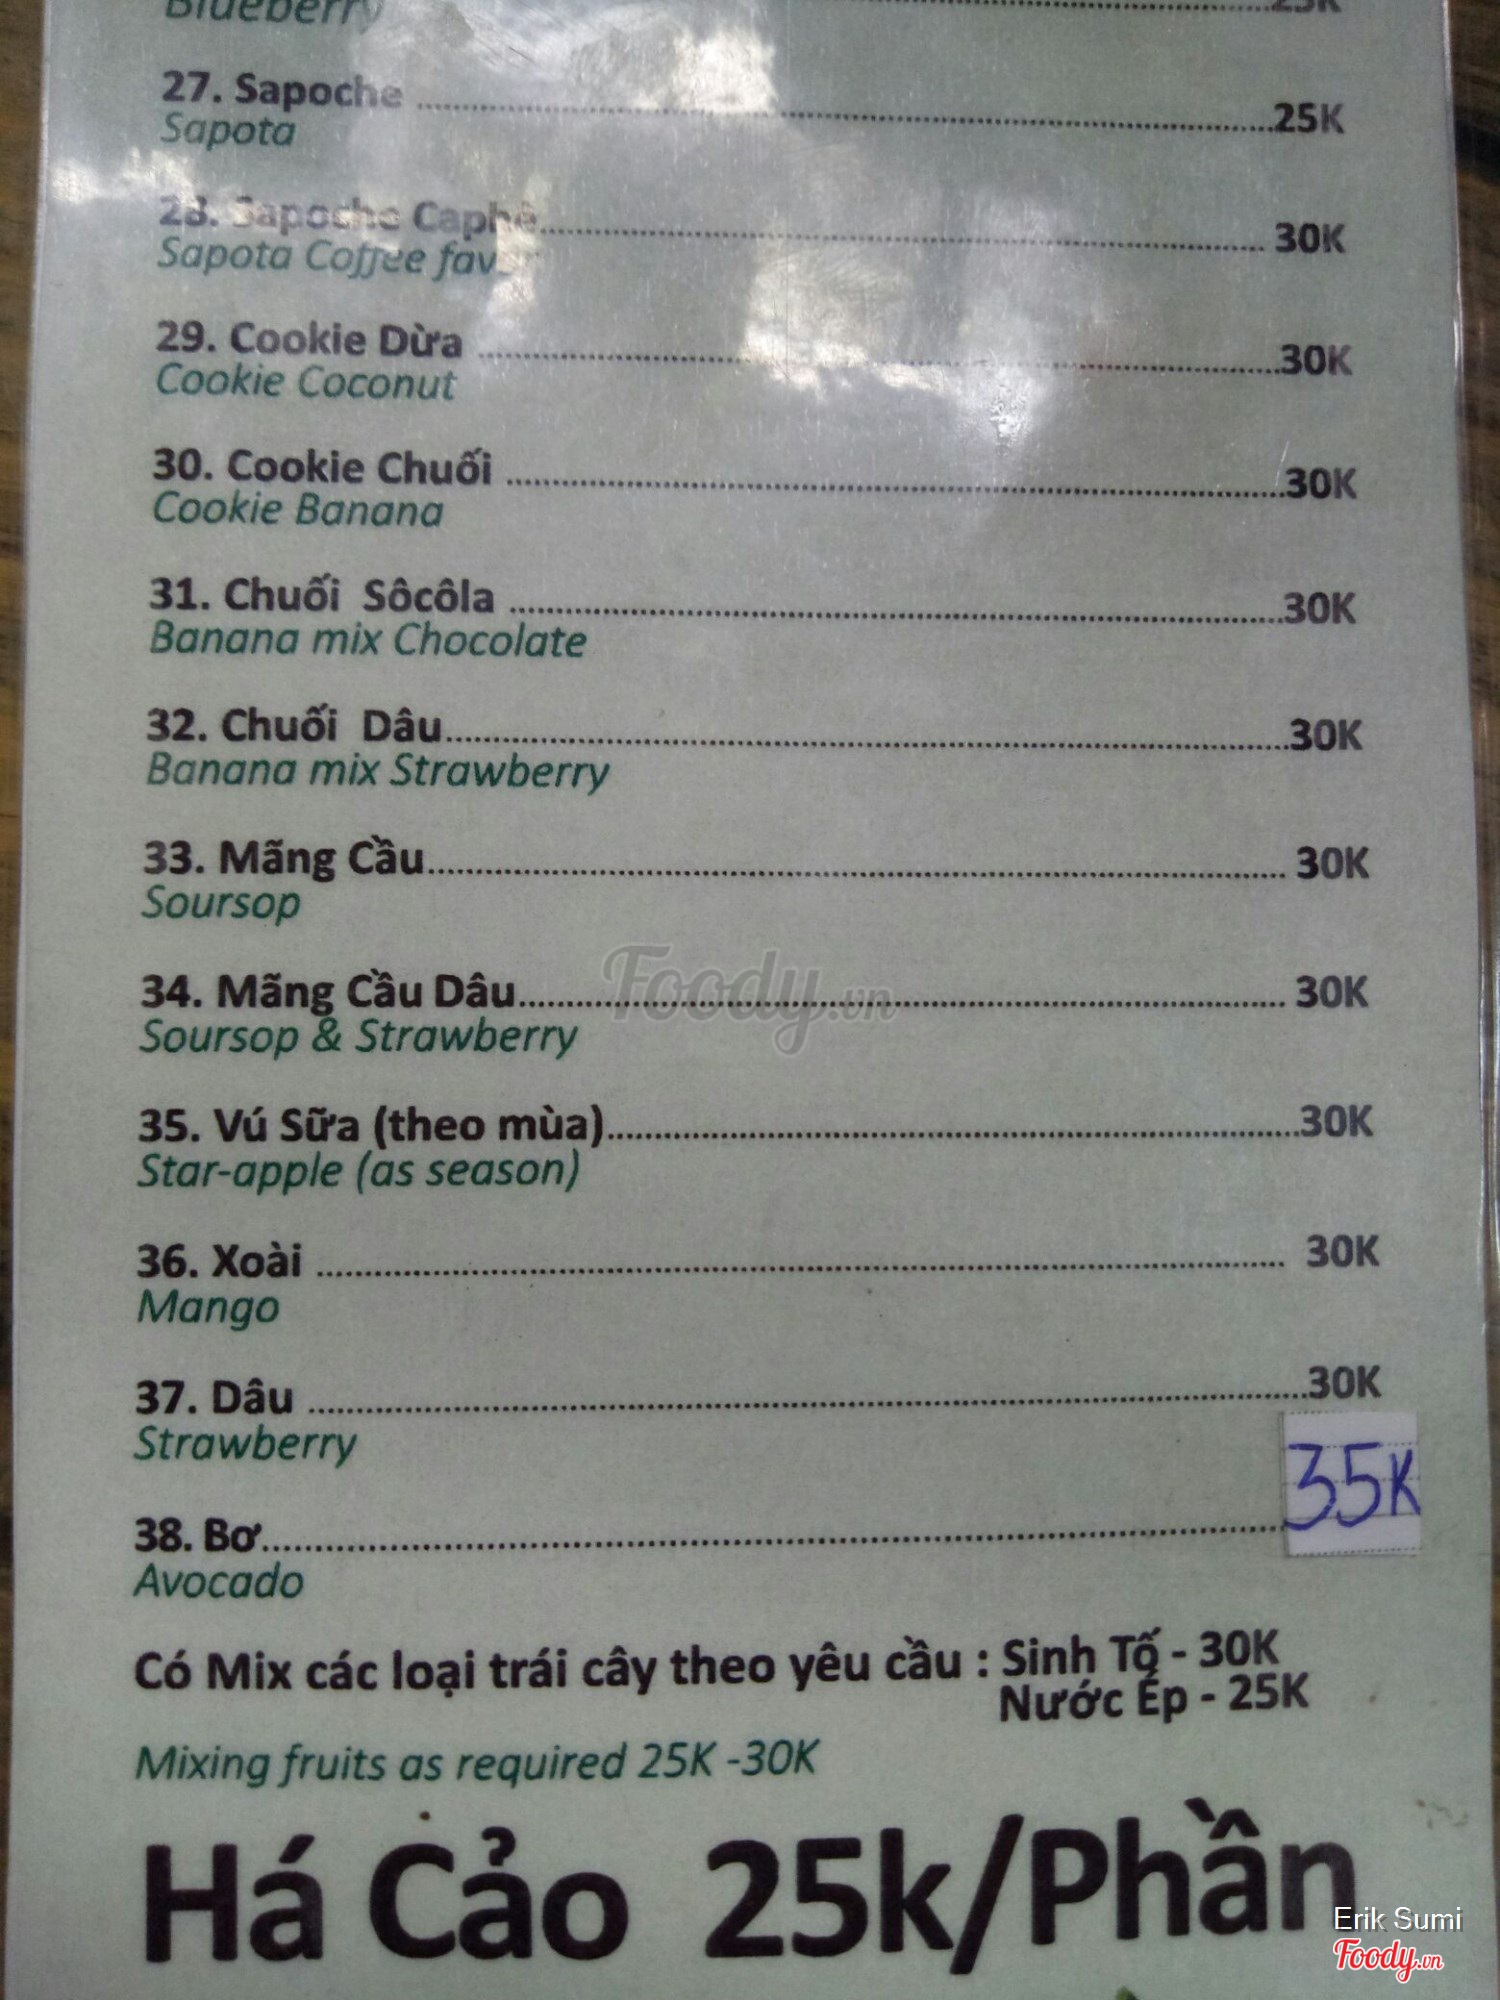 Blueberry 25K
27. Sapoche ... 25K
Sapota
28. Sapoche Caphê ... 30K
Sapota Coffee
29. Cookie Dừa ... 30K
Cookie Coconut
30. Cookie Chuối ... 30K
Cookie Banana
31. Chuối Sôcôla ... 30K
Banana mix Chocolate
32. Chuối Dâu ... 30K
Banana mix Strawberry
33. Mãng Cầu ... 30K
Soursop
34. Mãng Cầu Dâu ... 30K
Foody.vn
Soursop & Strawberry
35. Vú Sữa (theo mùa) ... 30K
Star-apple (as season)
36. Xoài ... 30K
Mango
37. Dâu ... 30K
Strawberry
38. Bơ ... 35K
Avocado
Có Mix các loại trái cây theo yêu cầu : Sinh Tố - 30K
Nước Ép - 25K
Mixing fruits as required 25K -30K
Há Cảo 25k/Phần
Erik Sumi
Foody.vn